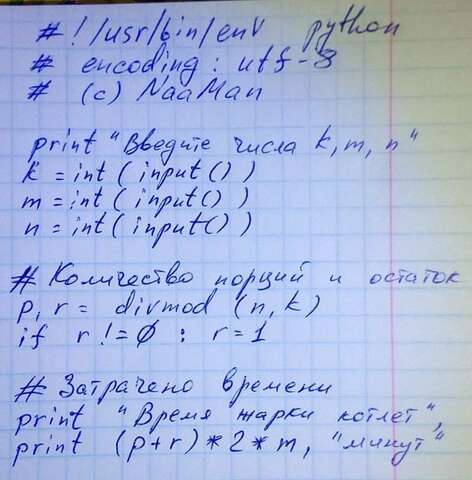 #!/usr/bin/env python
# encoding: utf-8
# (c) NaaMan
print "Введите числа k, m, n"
k = int(input())
m = int(input())
n = int(input())
# Количество порций и остаток
p, r = divmod (n, k)
if r != 0 : r = 1
# Затрачено времени
print "Время жарки котлет",
print (p+r)*2*m, "минут"